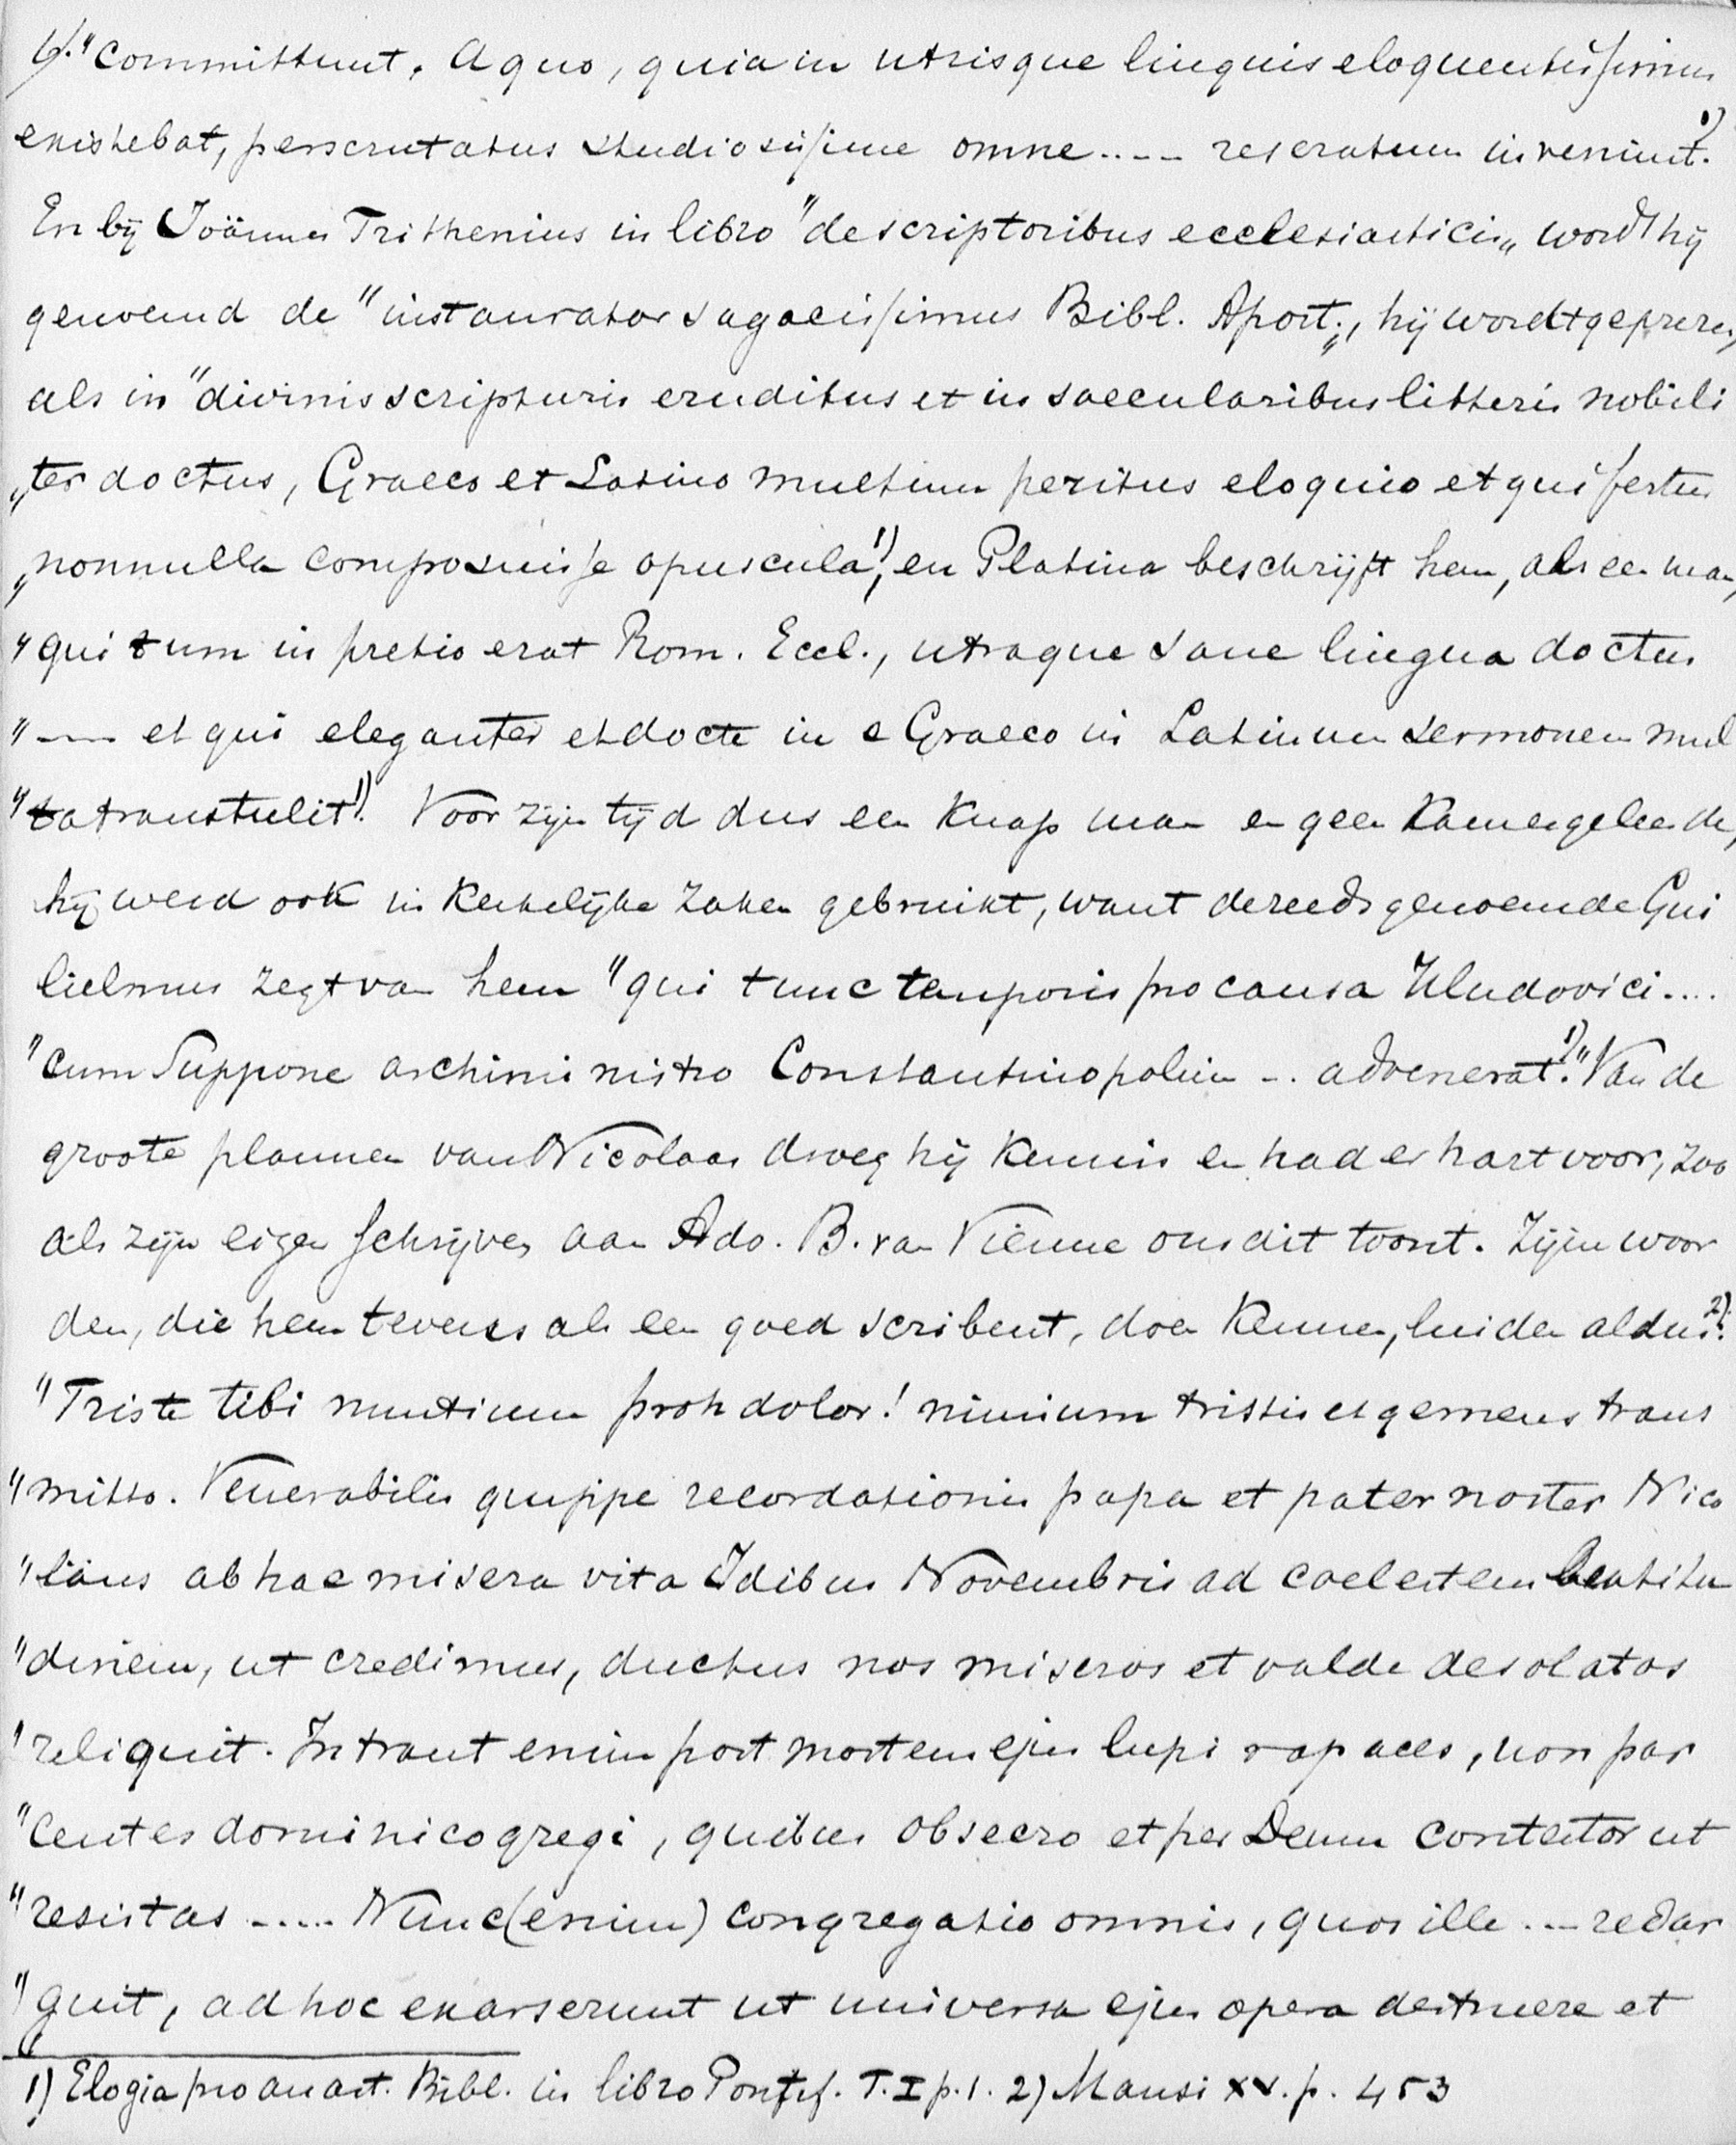 6." committunt. A quo, quia in utrisque linguis eloquentissimus
existebat, perscrutatus studiosissime omne .... reseratum inveniunt. 1)
En bij Joännes Trithenius in libro "de scriptoribus ecclesiasticis„ wordt hij
genoemd de "instaurator sagacissimus Bibl. Apost.„, hij wordt geprezen,
als in "divinis scripturis eruditus et in saecularibus litteris nobili
„ter doctus, Graeco et Latino multum peritus eloquio et qui fertur
„nonnulla composuisse opuscula 1), en Platina beschrijft hem, als een man,
"qui tum in pretio erat Rom. Eccl., utraque sane lingua doctus
" .... et qui eleganter et docte in e Graeco in Latinum sermonem mul
"ta transtulit 1). Voor zijn tijd dus een knap man en geen kamergeleerde,
hij werd ook in kerkelijke zaken gebruikt, want de reeds genoemde Gui
lielmus zegt van hem "qui tunc temporis pro causa Uludovici ....
"cum Suppone archiministro Constantinopolim .. advenerat. 1)" Van de
groote plannen van Nicolaas droeg hij kennis en had er hart voor, zoo
als zijn eigen schrijven aan Ado. B. van Vienne ons dit toont. Zijne woor
den, die hem tevens als een goed scribent, doen kennen, luiden aldus 2):
"Triste tibi nuntium proh dolor! nimium tristis et gemens trans
"mitto. Venerabilis quippe recordationis papa et pater noster Nico
"läus ab hac misera vita Idibus Novembris ad caelestem beatitu
"dinem, ut credimus, ductus nos miseros et valde desolatos
"reliquit. Intrant enim post mortem ejus lupi rapaces, non par
"centes dominico gregi, quibus obsecro et per Deum contestor ut
"resistas ..... Nunc (enim) congregatio omnis, quos ille .... redar
"guit, ad hoc exarserunt ut universa ejus opera destruere et
1) Elogia pro Anast. Bibl. in libro Pontif. T. I p. 1. 2) Mansi XV. p. 453